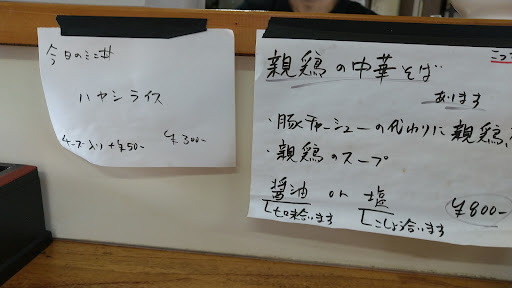 今日のミニ丼
ハヤシライス
チーズ入り+¥50-
¥300-
親鶏の中華そば
あります
・豚チャーシューの代わりに親鶏
・親鶏のスープ
醤油 or 塩
七味合います
こしょう合います
¥800-